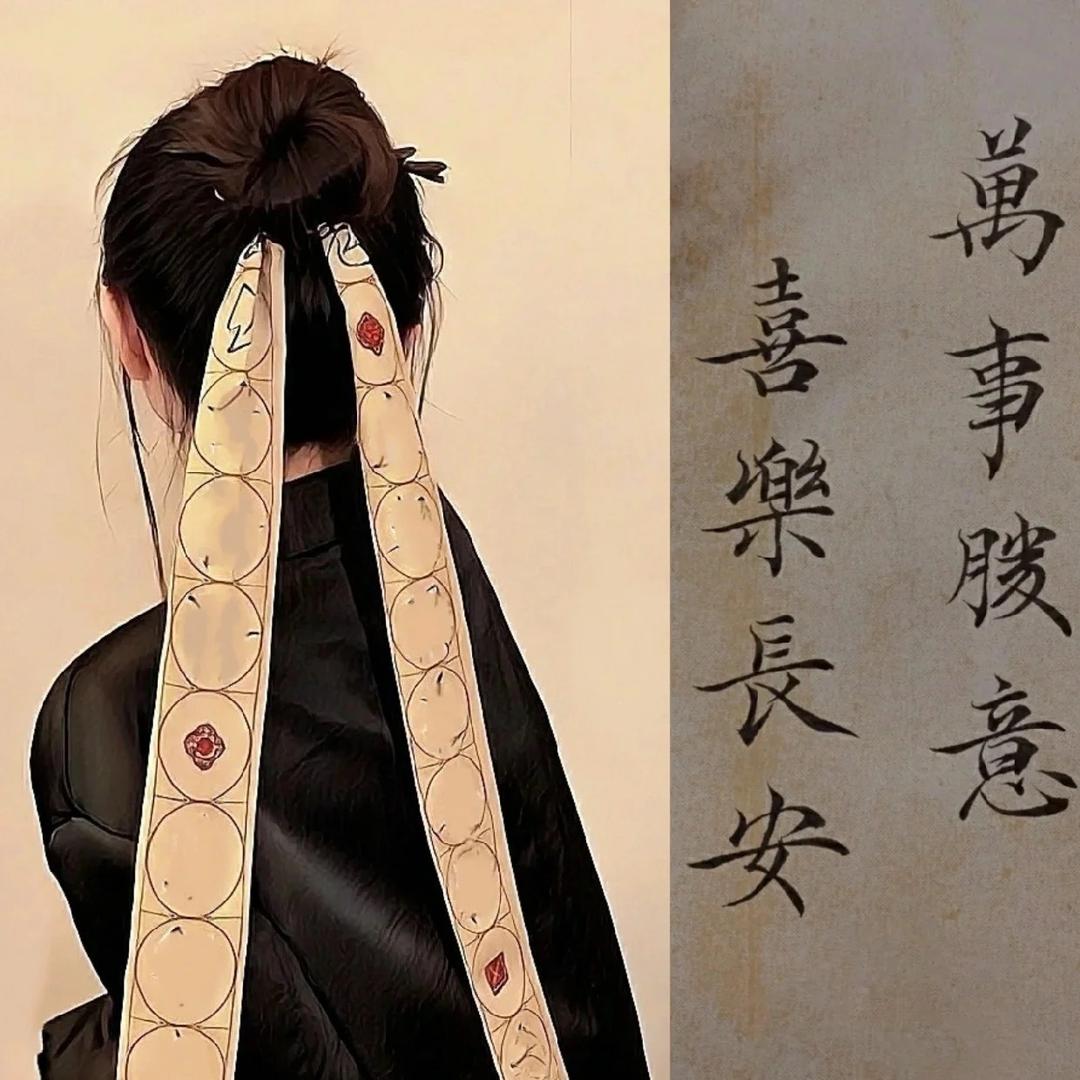 萬事勝意
喜樂長安